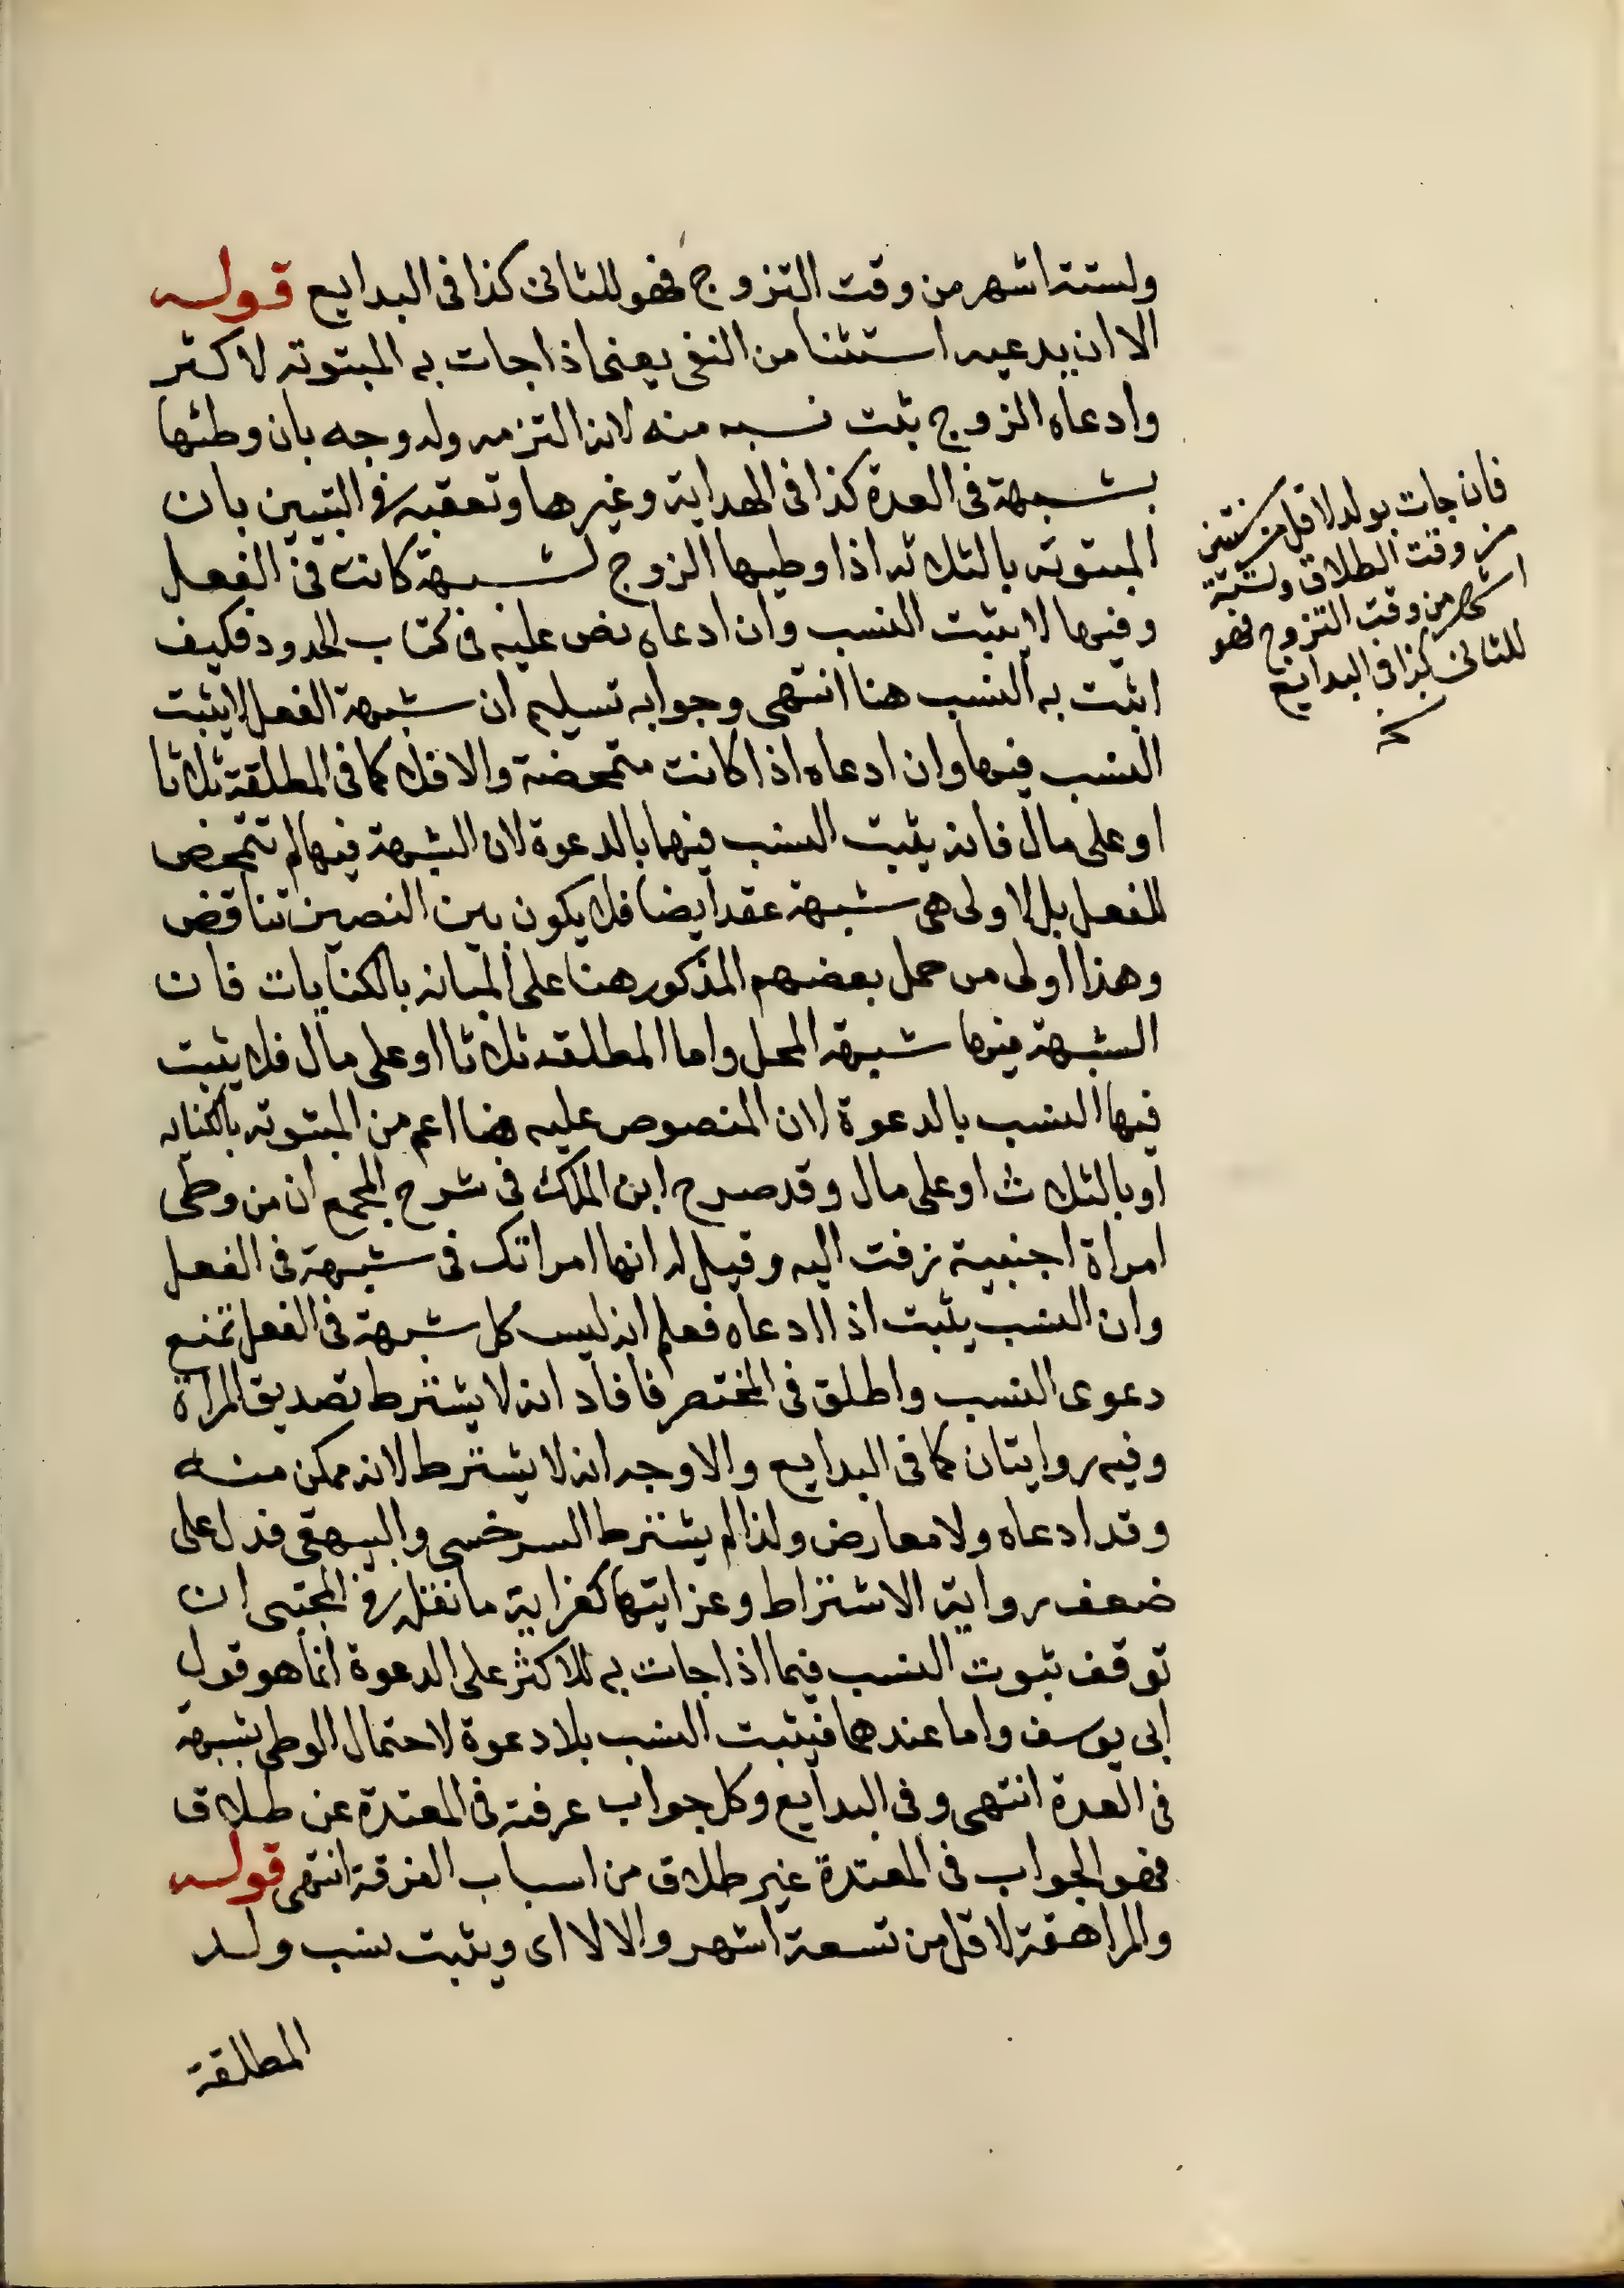 ولستة اشهر من وقت التزوج فهو للثانى كذا فى البدايع قوله
الا ان يدعيه استثنا من النفى يعنى اذا جات به المبتوته لاكثر
وادعاه الزوج يثبت نسبه منه لانه التزمه وله وجه بان وطئها
بشبهة فى العدة كذا فى الهداية وغيرها وتعقبه فى التبيين بان
المبتوته بالثلاثه اذا وطيها الزوج لشبهة كانت فى الفعل
وفيها لا يثبت النسب وان ادعاه نص عليه فى كتاب الحدود فكيف
اثبت به النسب هنا انتهى وجوابه تسليم ان شبهة الفعل لا يثبت
النسب فيها وان ادعاه اذا كانت متمحضة والا فلا كما فى المطلقة ثلاثا
او على مال فانه يثبت النسب فيها بالدعوة لان الشبهة فيها لم تتمحض
للفعل بل الاولى هى شبهة عقد ايضا فلا يكون بين النصين تناقض
وهذا اولى من حمل بعضهم المذكور هنا على المبانه بالكنايات فان
الشبهة فيها شبهة المحل واما المطلقه ثلاثا او على مال فلا يثبت
فيها النسب بالدعوة لان المنصوص عليه هنا اعم من المبتوته بالكنايه
او بالثلاث او على مال وقد صرح ابن الملك فى شرح المجمع ان من وطى
امراة اجنبية زفت اليه وقيل له انها امراتك فى شبهة فى الفعل
وان النسب يثبت اذا ادعاه فعلم انه ليس كل شبهة فى الفعل تمنع
دعوى النسب واطلق فى المختصر فافاد انه لا يشترط تصديق المراة
وفيه روايتان كما فى البدايع والاوجه انه لا يشترط لانه ممكن منه
وقد ادعاه ولا معارض ولذا لم يشترط السرخسى والبيهقى فدل على
ضعف رواية الاشتراط وغرابتها كغرابة ما نقله فى المجتبى ان
توقف ثبوت النسب فيما اذا جات به للاكثر على الدعوة انما هو قول
ابى يوسف واما عندهما فيثبت النسب بلا دعوة لاحتمال الوطى بشبهة
فى العدة انتهى وفى البدايع وكل جواب عرفته فى المعتدة عن طلاق
فهو الجواب فى المعتدة غير طلاق من اسباب الفرقة انتهى قوله
والمراهقة لاقل من تسعة اشهر والا لا اى ويثبت نسب ولد
المطلقة
فان جات بولد لاقل من سنتين
من وقت الطلاق ولستة
اشهر من وقت التزوج فهو
للثانى كذا فى البدايع